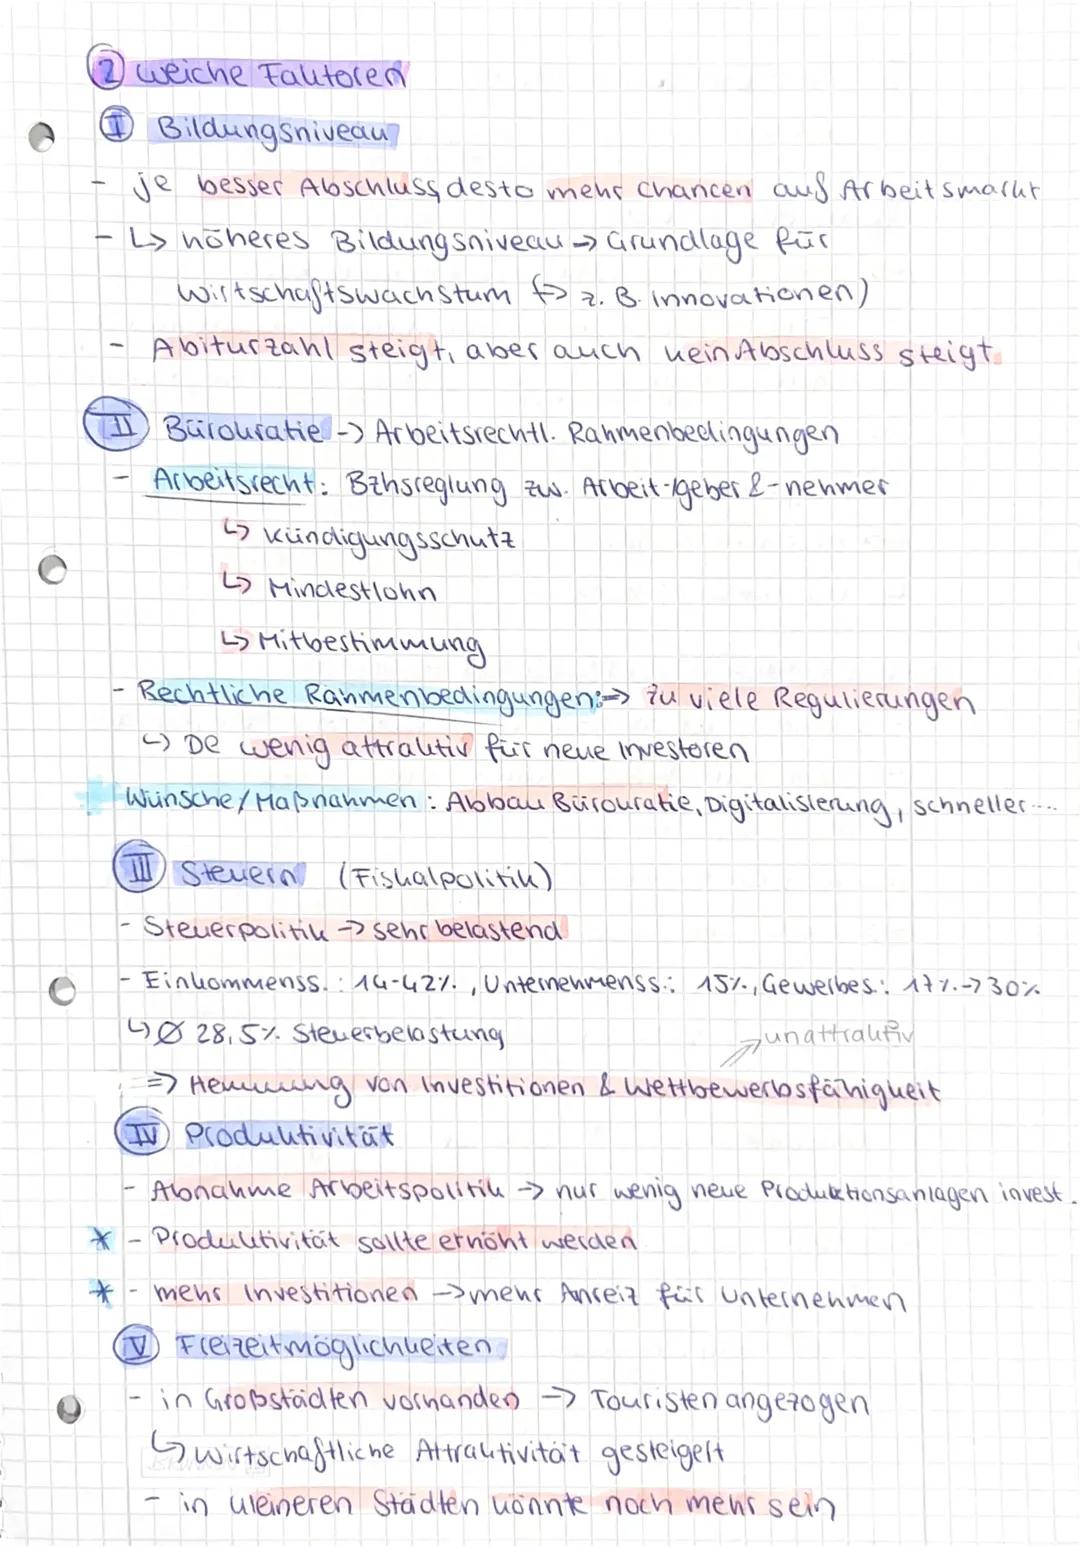 2 weiche Faktoren
I Bildungsniveau
- je besser Abschluss, desto mehr Chancen auf Arbeitsmarkt
- ↳ höheres Bildungsniveau → Grundlage für
Wirtschaftswachstum (→ z. B. Innovationen)
- Abiturzahl steigt, aber auch kein Abschluss steigt
II Bürokratie → Arbeitsrechtl. Rahmenbedingungen
- Arbeitsrecht: Bzhsreglung zw. Arbeit-geber & -nehmer
↳ Kündigungsschutz
↳ Mindestlohn
↳ Mitbestimmung
- Rechtliche Rahmenbedingungen: → zu viele Regulierungen
↳ DE wenig attraktiv für neue Investoren
Wünsche/Maßnahmen: Abbau Bürokratie, Digitalisierung, schneller....
III Steuern (Fiskalpolitik)
- Steuerpolitik → sehr belastend
- Einkommenss.: 14-42%, Unternehmenss.: 15%, Gewerbes.: 17% → 30%
↳ Ø 28,5% Steuerbelastung
→ unattraktiv
⇒ Hemmung von Investitionen & Wettbewerbsfähigkeit
IV Produktivität
- Abnahme Arbeitspolitik → nur wenig neue Produktionsanlagen invest.
* - Produktivität sollte erhöht werden
* - mehr Investitionen → mehr Anreiz für Unternehmen
V Freizeitmöglichkeiten
- in Großstädten vorhanden → Touristen angezogen
↳ wirtschaftliche Attraktivität gesteigert
- in kleineren Städten könnte noch mehr sein